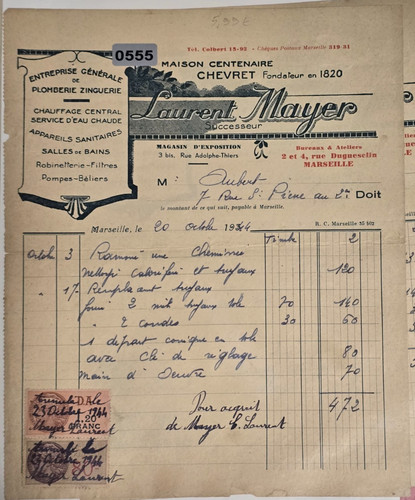 5,99€
0555
Tél. Colbert 15-95 — Chèques Postaux Marseille 219 51
ENTREPRISE GÉNÉRALE
DE
PLOMBERIE ZINGUERIE
CHAUFFAGE CENTRAL
SERVICE D'EAU CHAUDE
APPAREILS SANITAIRES
SALLES DE BAINS
Robinetterie-Filtres
Pompes-Béliers
MAISON CENTENAIRE
CHEVRET Fondateur en 1820
Laurent Mayer
Successeur
MAGASIN D'EXPOSITION
3 bis, Rue Adolphe-Thiers
Bureaux & Ateliers
2 et 4, rue Duguesclin
MARSEILLE
M. Aubert
7 Rue St Pierre au 2me Doit
le montant de ce qui suit, payable à Marseille.
Marseille, le 20 octobre 1944
R. C. Marseille 35 502
Timbre 2
Octobre 3 Ramoné une cheminée
Nettoyé Calorifère et tuyaux 120
" 17 Remplaçant tuyaux
fourni 2 mèt tuyaux tôle 70 140
" 2 coudes 30 60
1 départ conique en tôle
avec clé de réglage 80
Main d'Oeuvre 70
472
Pour acquit
de Mayer C. Laurent
DAle
23 Octobre 1944
20
FRANC
Mayer Laurent
23 Octobre 1944
Mayer Laurent